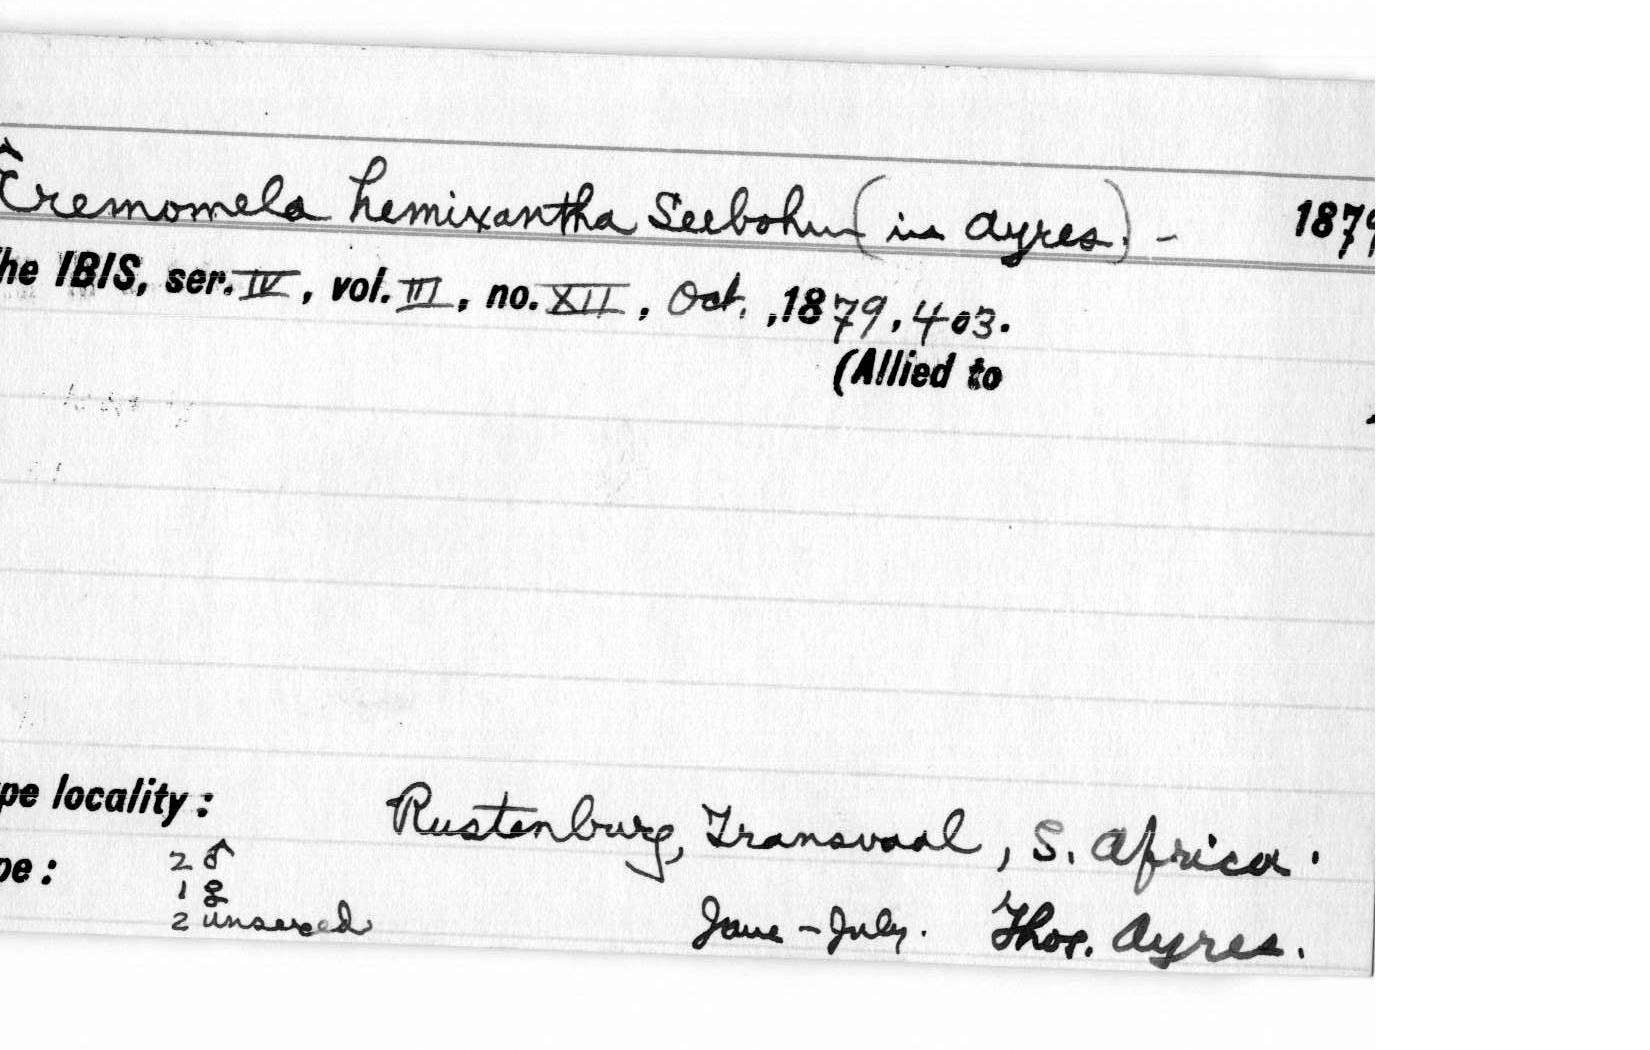 Eremomela hemixantha Seebohm (in Ayres). - 1879
he IBIS, ser. IV, vol. III, no. XII, Oct., 1879, 403.
(Allied to
pe locality:
Rustenburg, Transvaal, S. Africa.
pe: 2 ♂
1 ♀
2 unsexed
June - July. Thos. Ayres.